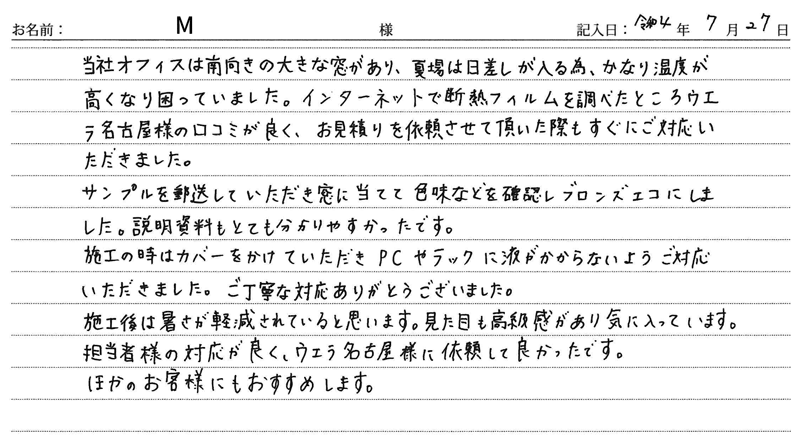 お名前： M 様 記入日：令和4年7月27日
当社オフィスは南向きの大きな窓があり、夏場は日差しが入る為、かなり温度が
高くなり困っていました。インターネットで断熱フィルムを調べたところウエ
ラ名古屋様の口コミが良く、お見積りを依頼させて頂いた際もすぐにご対応い
ただきました。
サンプルを郵送していただき窓に当てて色味などを確認しブロンズエコにしま
した。説明資料もとても分かりやすかったです。
施工の時はカバーをかけていただきPCやラックに液がかからないようご対応
いただきました。ご丁寧な対応ありがとうございました。
施工後は暑さが軽減されていると思います。見た目も高級感があり気に入っています。
担当者様の対応が良く、ウエラ名古屋様に依頼して良かったです。
ほかのお客様にもおすすめします。